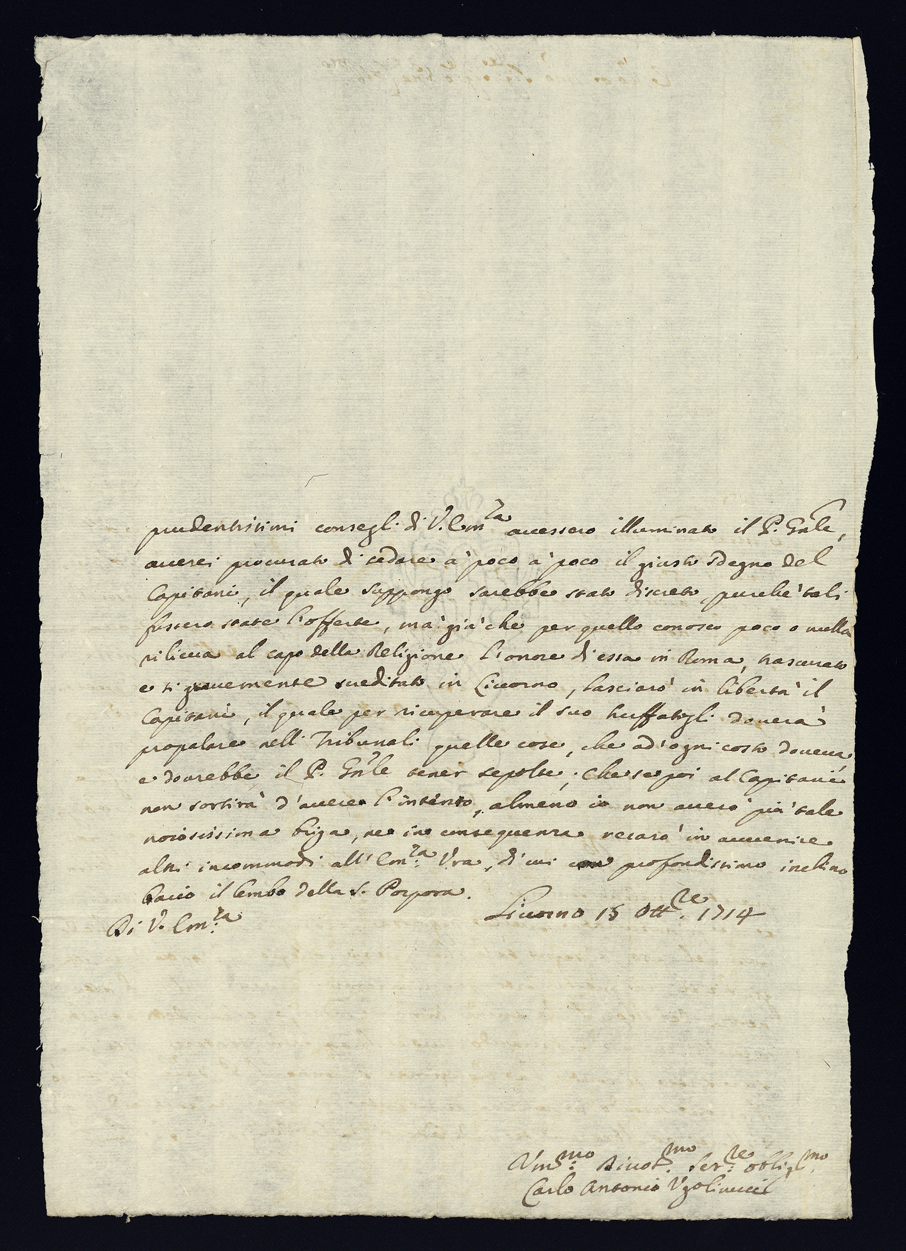 prudentissimi consegli di V. Em.za avessero illuminato il P. Gn̄le,
averei procurato di sedare à poco à poco il giusto sdegno del
Capitani, il quale suppongo sarebbe stato discreto, purche tali
fussero state l'offerte, mà già che per quello conosco poco o nulla
rilieva al capo della Religione l'onore di essa in Roma, trascurato
e sì gravemente screditato in Livorno, lasciarò in libertà il
Capitani, il quale per ricuperare il suo truffatogli doverà
propalare nelli Tribunali quelle cose, che ad'ogni costo doveva
e dovrebbe il P. Gn̄le tener sepolte; che se poi al Capitani
non sortirà d'avere l'intento, almeno io non averò più tale
noiosissima briga, ne in consequenza recarò in avvenire
altri incommodi all' Em.za V̄ra, di cui profondissimo inclino
bacio il lembo della S. Porpora.
Di V. Em.za
Livorno 15 Ott.re 1714
Um.mo Divot.mo Ser.re oblig.mo
Carlo Antonio Ugolinucci